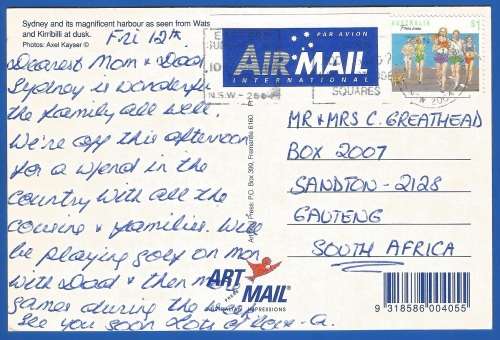 Sydney and its magnificent harbour as seen from Wats
and Kirribilli at dusk.
Photos: Axel Kayser ©
Fri 12th
Dearest Mom & Dad
Sydney is wonderful
the family all well.
We're off this afternoon
for a w/end in the
country with all the
cousins & families. Will
be playing golf on mon
with Dad & then
games during the
See you soon Lots of love - G.
PAR AVION
AIR MAIL
INTERNATIONAL
N.S.W-
SQUARES
AUSTRALIA
$1
MR & MRS C. GREATHEAD
BOX 2007
SANDTON - 2128
GAUTENG
SOUTH AFRICA
Press: P.O. Box 399, Fremantle 6160.
ART
MAIL
IMPRESSIONS
9 318586 004055